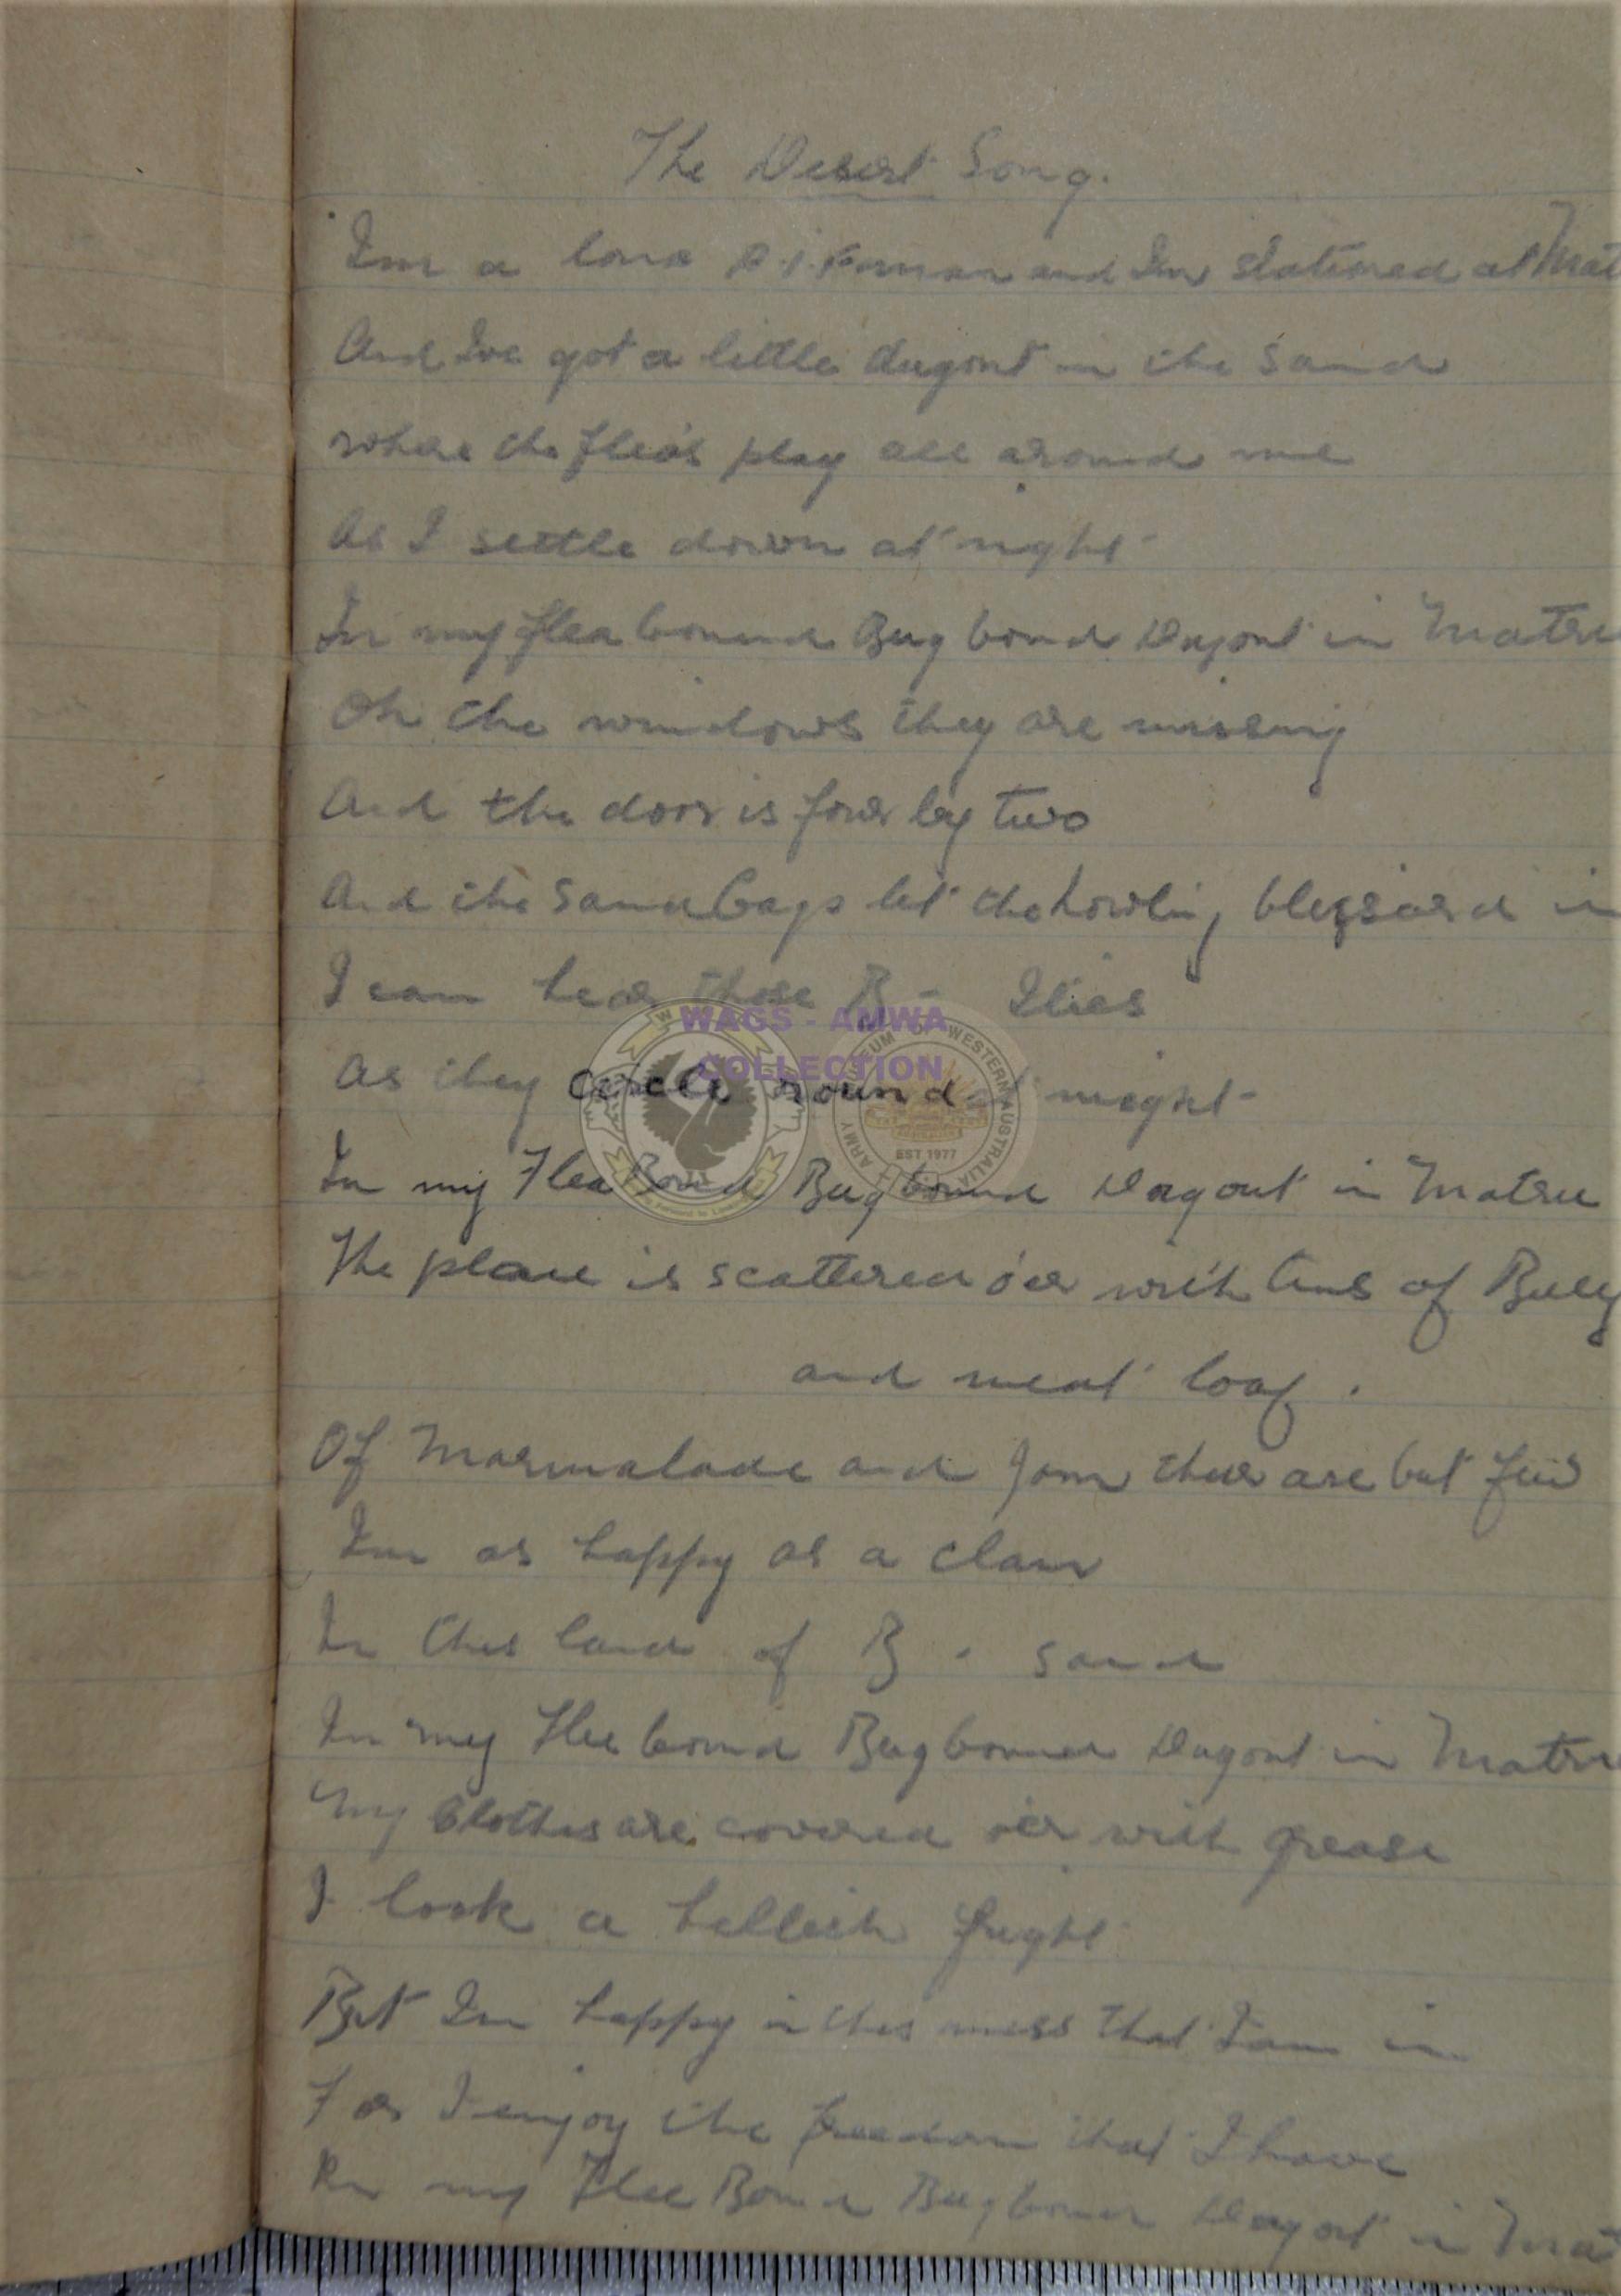 The Desert Song.
Im a lone A.I.F. man and Im stationed at Mat
And Ive got a little dugout in the sand
where the fleas play all around me
As I settle down at night
In my flea bound Bug bound Dugout in Matru
Oh the windows they are missing
And the door is four by two
And the sand bags let the howling blizzard in
I can hear those B - flies
As they circle round at night
In my Flea Bound Bug bound Dugout in Matru
The place is scattered o'er with tins of Bully
and meat loaf.
Of Marmalade and Jam there are but few
Im as happy as a clam
In this land of B - sand
In my Flee bound Bug bound Dugout in Matru
My Clothes are covered o'er with grease
I look a hellish fright
But Im happy in this mess that I am in
For I enjoy the freedom that I have
In my Flee Bound Bug bound Dugout in Mat
WAGS - AMWA
COLLECTION
ARMY MUSEUM OF WESTERN AUSTRALIA
EST 1977